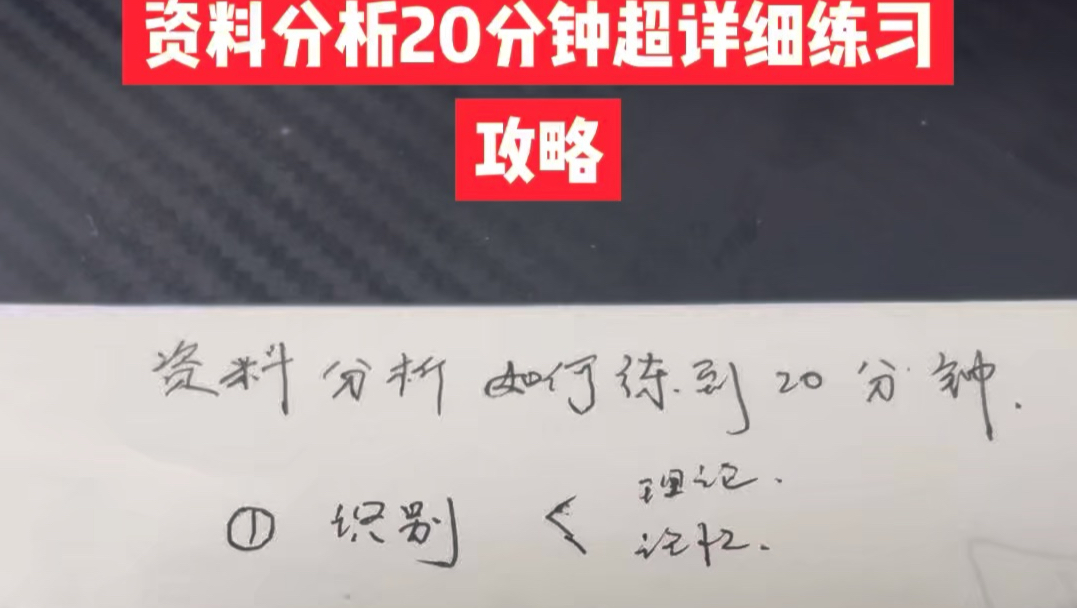 资料分析20分钟超详细练习
攻略
资料分析如何练到20分钟.
① 识别 < 理论.
记忆.